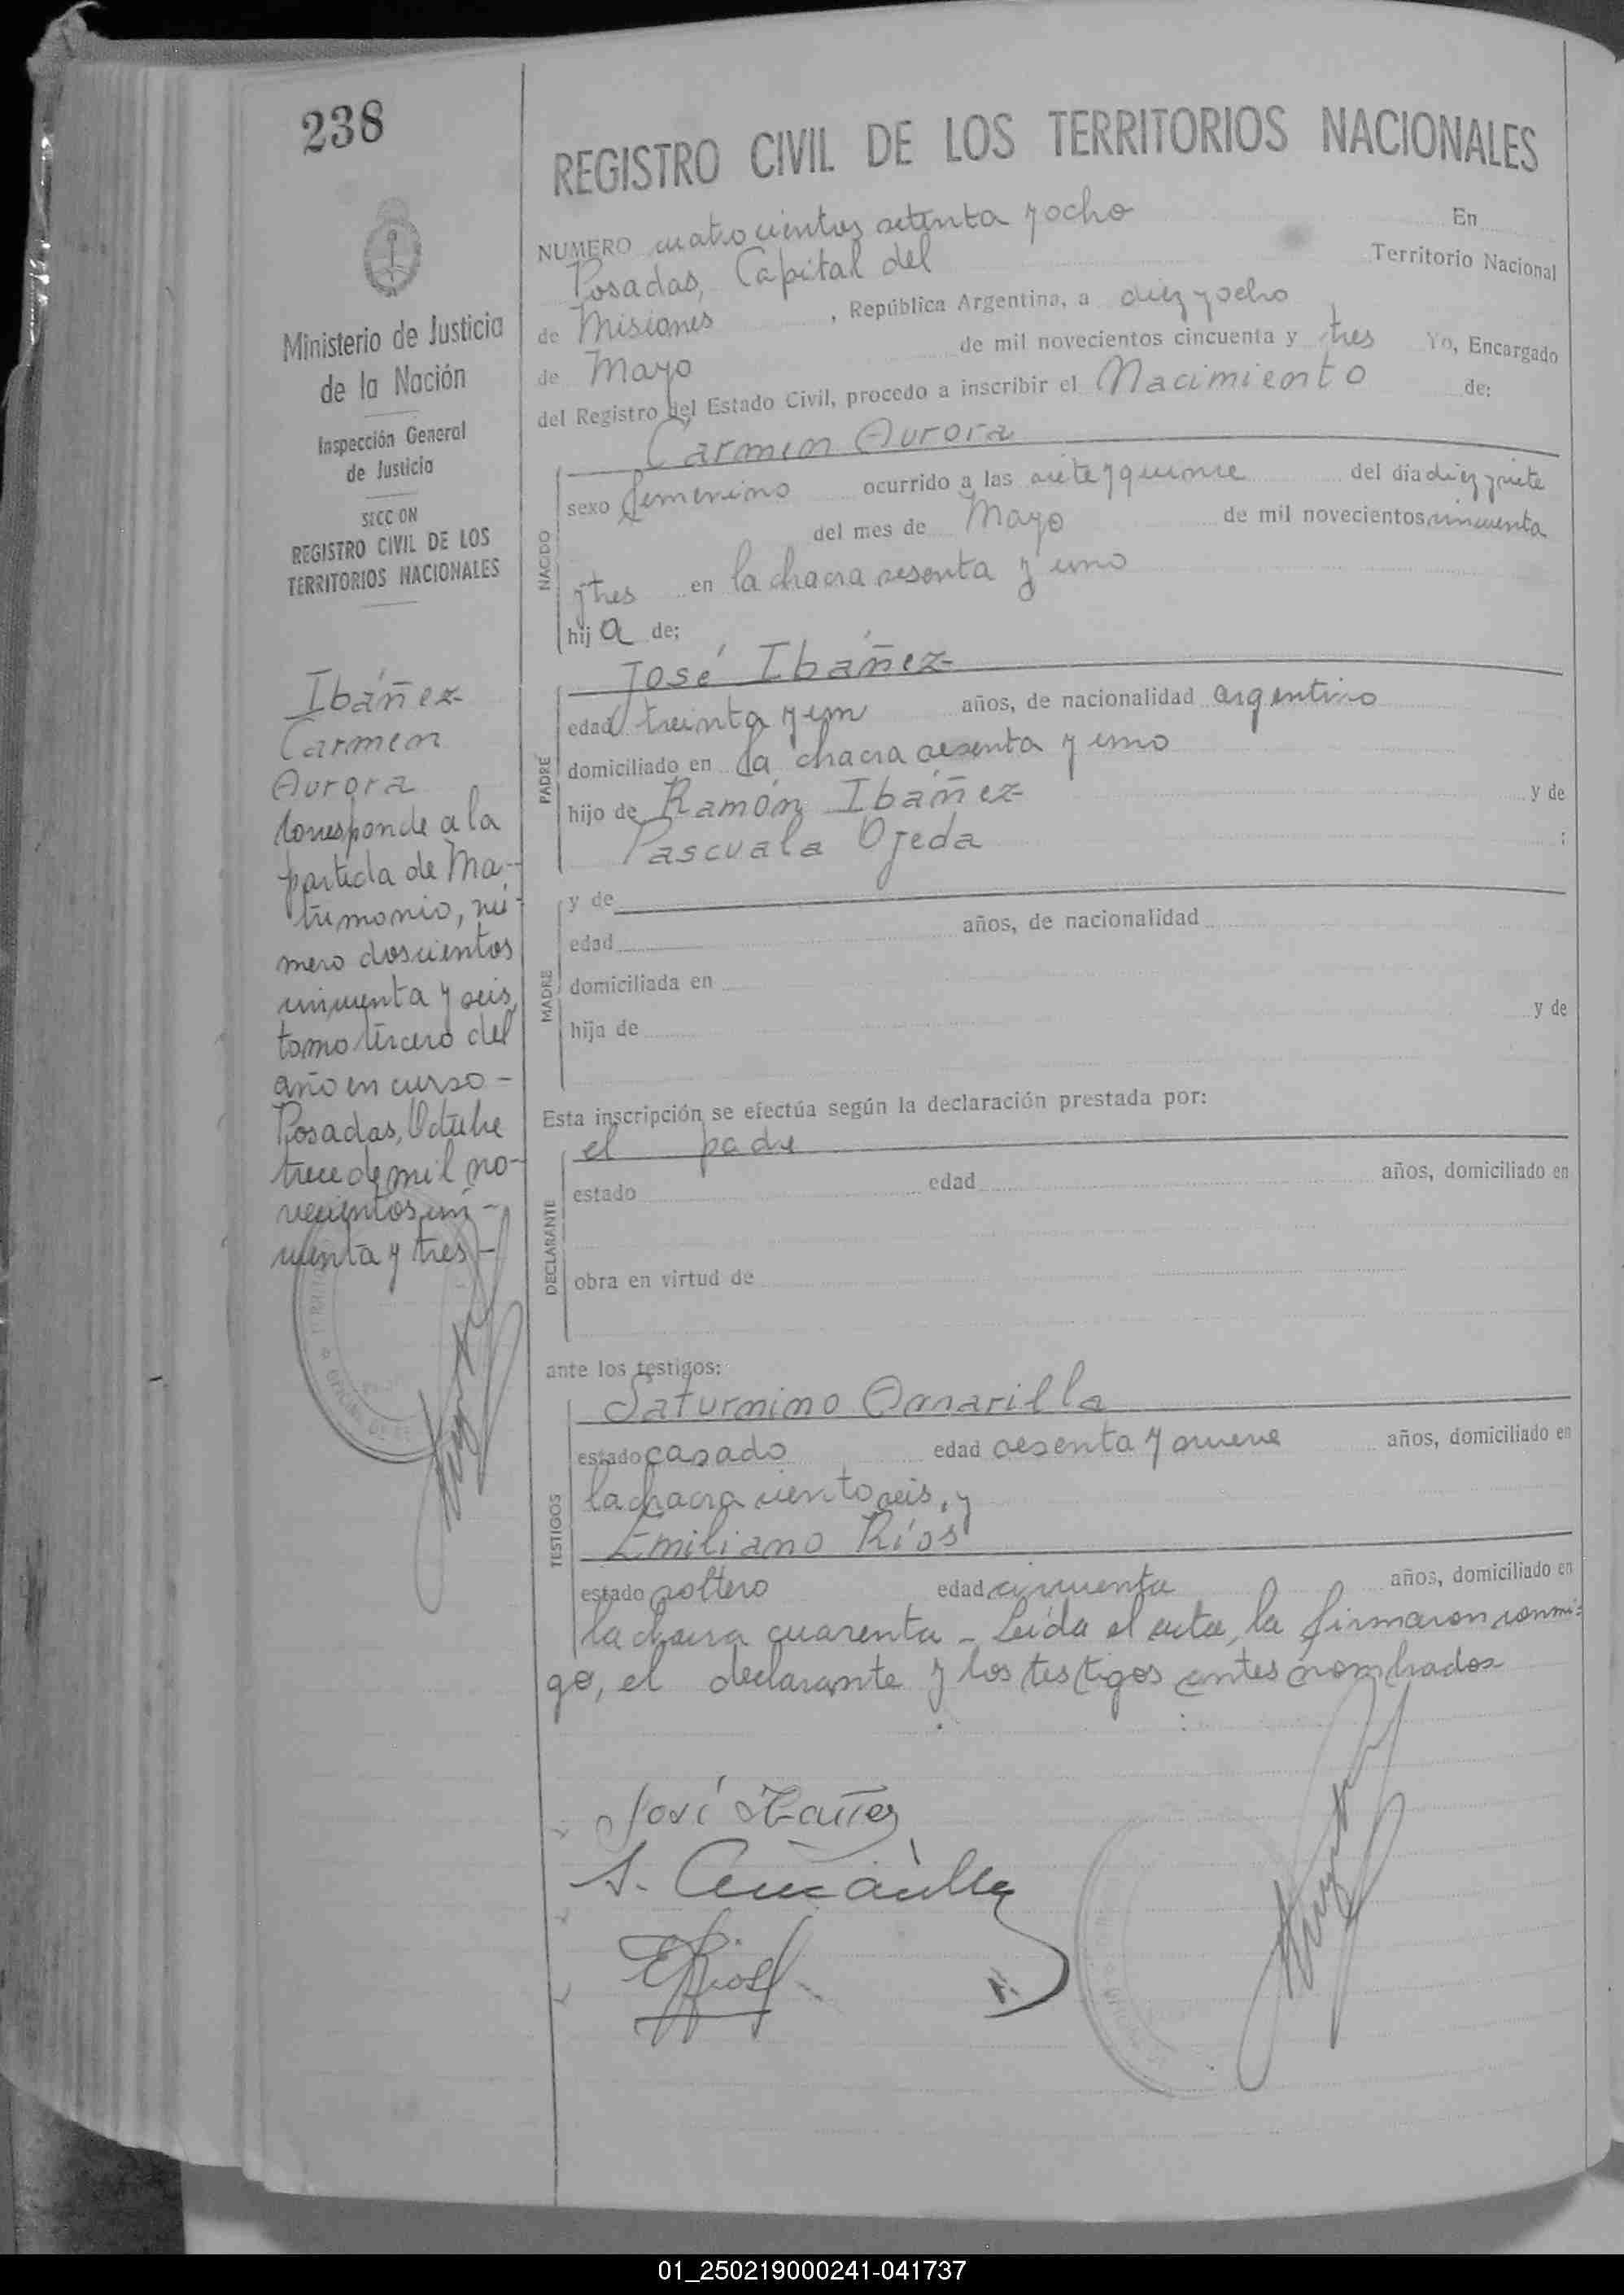 238
Ministerio de Justicia
de la Nación
Inspección General
de Justicia
SECCION
REGISTRO CIVIL DE LOS
TERRITORIOS NACIONALES
Ibáñez
Carmen
Aurora
Corresponde a la
partida de Ma-
trimonio, nú-
mero doscientos
cincuenta y seis,
tomo tercero del
año en curso -
Posadas, Octubre
trece de mil no-
vecientos cin-
cuenta y tres -
REGISTRO CIVIL DE LOS TERRITORIOS NACIONALES
NUMERO cuatrocientos setenta y ocho En
Posadas, Capital del Territorio Nacional
de Misiones, República Argentina, a diez y ocho
de Mayo de mil novecientos cincuenta y tres Yo, Encargado
del Registro del Estado Civil, procedo a inscribir el Nacimiento de:
NACIDO
Carmen Aurora
sexo femenino ocurrido a las siete y quince del día diez y siete
del mes de Mayo de mil novecientos cincuenta
y tres en la chacra sesenta y uno
hija de;
PADRE
José Ibáñez
edad treinta y un años, de nacionalidad argentino
domiciliado en la chacra sesenta y uno
hijo de Ramón Ibáñez y de
Pascuala Ojeda ;
MADRE
y de
edad años, de nacionalidad
domiciliada en
hija de y de
Esta inscripción se efectúa según la declaración prestada por:
DECLARANTE
el padre
estado edad años, domiciliado en
obra en virtud de
ante los testigos:
TESTIGOS
Saturnino Amarilla
estado casado edad sesenta y nueve años, domiciliado en
la chacra ciento seis, y
Emiliano Ríos
estado soltero edad cincuenta años, domiciliado en
la chacra cuarenta - Leída el acta, la firmaron conmi-
go, el declarante y los testigos antes nombrados
José Ibáñez
S. Amarilla
E Rios
01_250219000241-041737